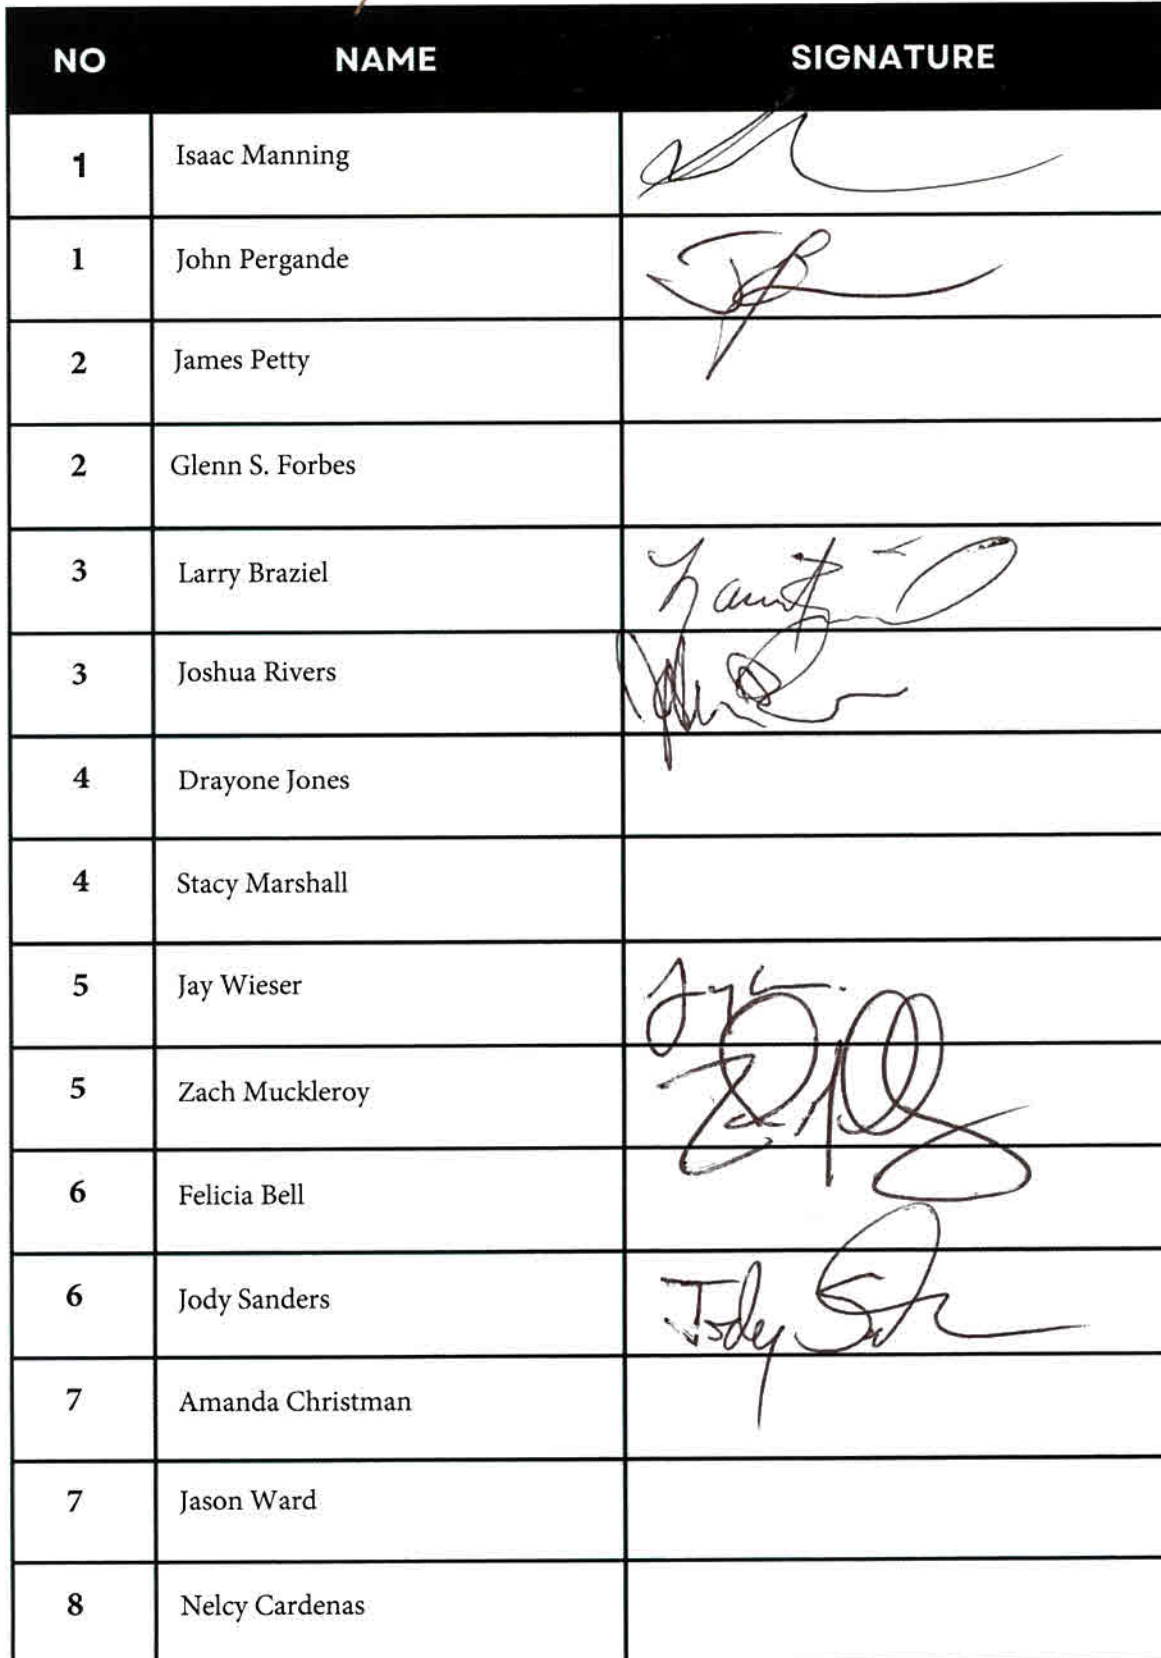 NO NAME SIGNATURE
1 Isaac Manning
1 John Pergande
2 James Petty
2 Glenn S. Forbes
3 Larry Braziel
3 Joshua Rivers
4 Drayone Jones
4 Stacy Marshall
5 Jay Wieser
5 Zach Muckleroy
6 Felicia Bell
6 Jody Sanders Jody
7 Amanda Christman
7 Jason Ward
8 Nelcy Cardenas